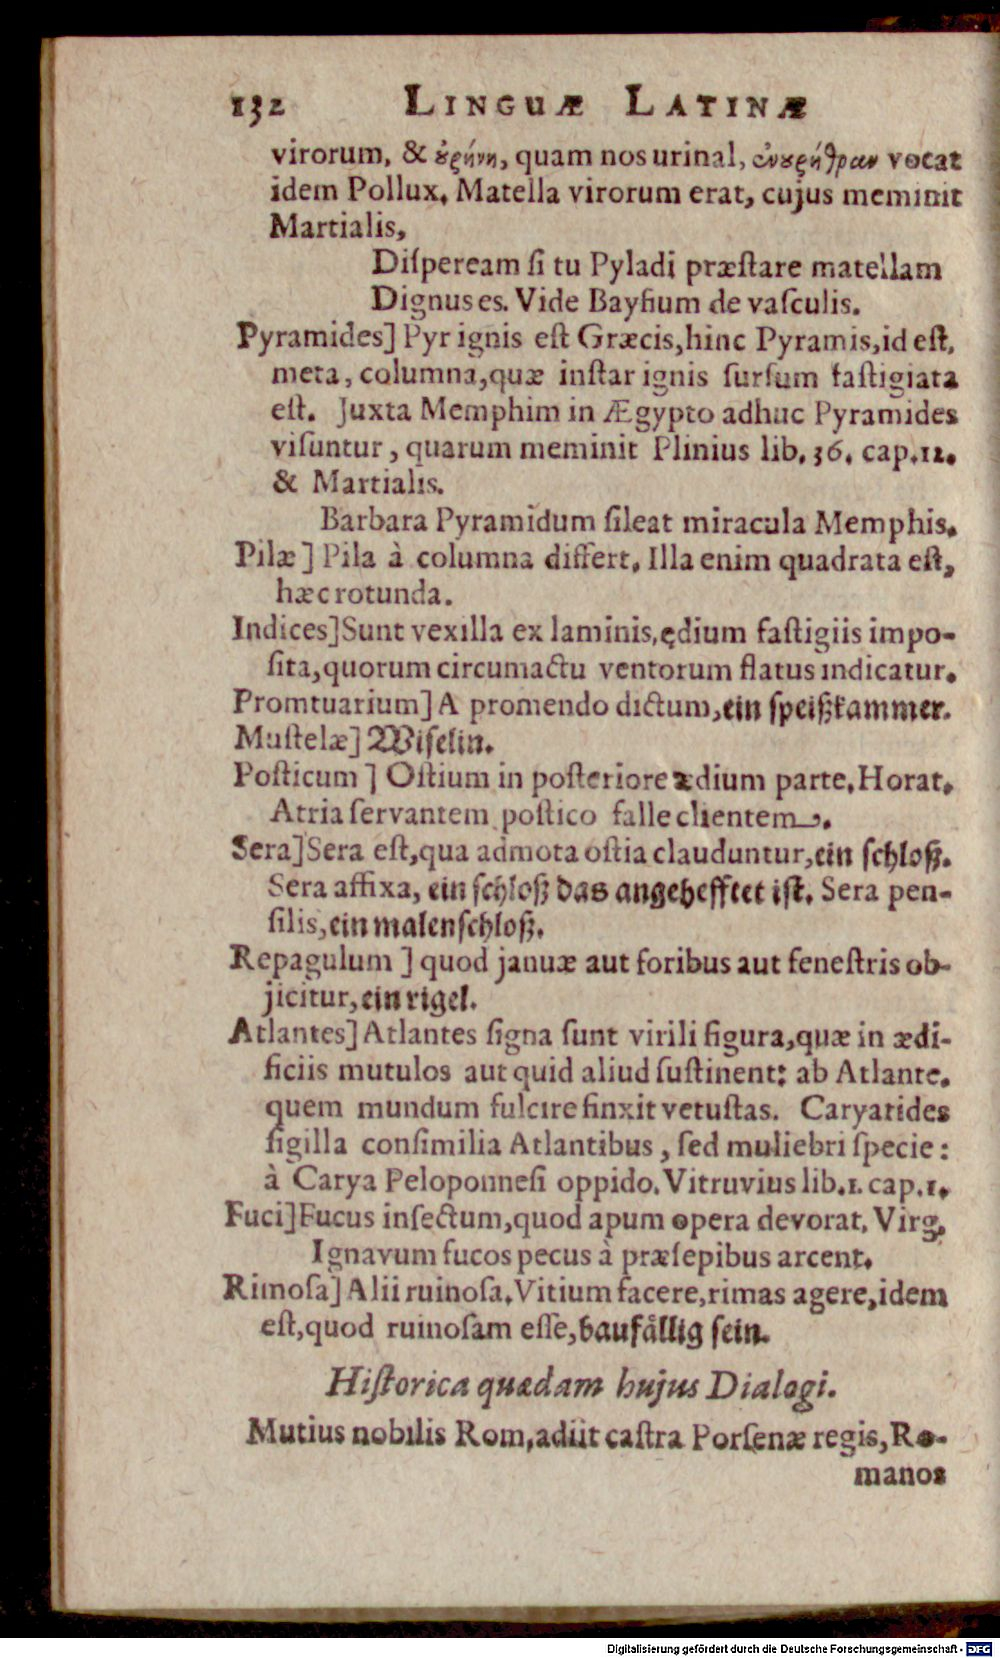 132 LINGUÆ LATINÆ
virorum, & ȣρήνη, quam nos urinal, ἐνȣρήθραν vocat
idem Pollux. Matella virorum erat, cujus meminit
Martialis,
Diſpeream ſi tu Pyladi præſtare matellam
Dignus es. Vide Bayſium de vaſculis.
Pyramides] Pyr ignis eſt Græcis, hinc Pyramis, id eſt,
meta, columna, quæ inſtar ignis ſurſum faſtigiata
eſt. Juxta Memphim in Ægypto adhuc Pyramides
viſuntur, quarum meminit Plinius lib. 36. cap. 12.
& Martialis.
Barbara Pyramidum ſileat miracula Memphis.
Pilæ] Pila à columna differt. Illa enim quadrata eſt,
hæc rotunda.
Indices] Sunt vexilla ex laminis, ędium faſtigiis impo-
ſita, quorum circumactu ventorum flatus indicatur.
Promtuarium] A promendo dictum, ein ſpeißkammer.
Muſtelæ] Wiſelin.
Poſticum] Oſtium in poſteriore ædium parte. Horat.
Atria ſervantem poſtico falle clientem.
Sera] Sera eſt, qua admota oſtia clauduntur, ein ſchloß.
Sera affixa, ein ſchloß das angehefftet iſt. Sera pen-
ſilis, ein malenſchloß.
Repagulum] quod januæ aut foribus aut feneſtris ob-
jicitur, ein rigel.
Atlantes] Atlantes ſigna ſunt virili figura, quæ in ædi-
ficiis mutulos aut quid aliud ſuſtinent: ab Atlante.
quem mundum fulcire finxit vetuſtas. Caryatides
ſigilla conſimilia Atlantibus, ſed muliebri ſpecie:
à Carya Peloponneſi oppido. Vitruvius lib. 1. cap. 1.
Fuci] Fucus inſectum, quod apum opera devorat. Virg.
Ignavum fucos pecus à præſepibus arcent.
Rimoſa] Alii ruinoſa. Vitium facere, rimas agere, idem
eſt, quod ruinoſam eſſe, baufållig ſein.
Hiſtorica quædam hujus Dialogi.
Mutius nobilis Rom, adiit caſtra Porſenæ regis, Ro-
manos
Digitalisierung gefördert durch die Deutsche Forschungsgemeinschaft - DFG